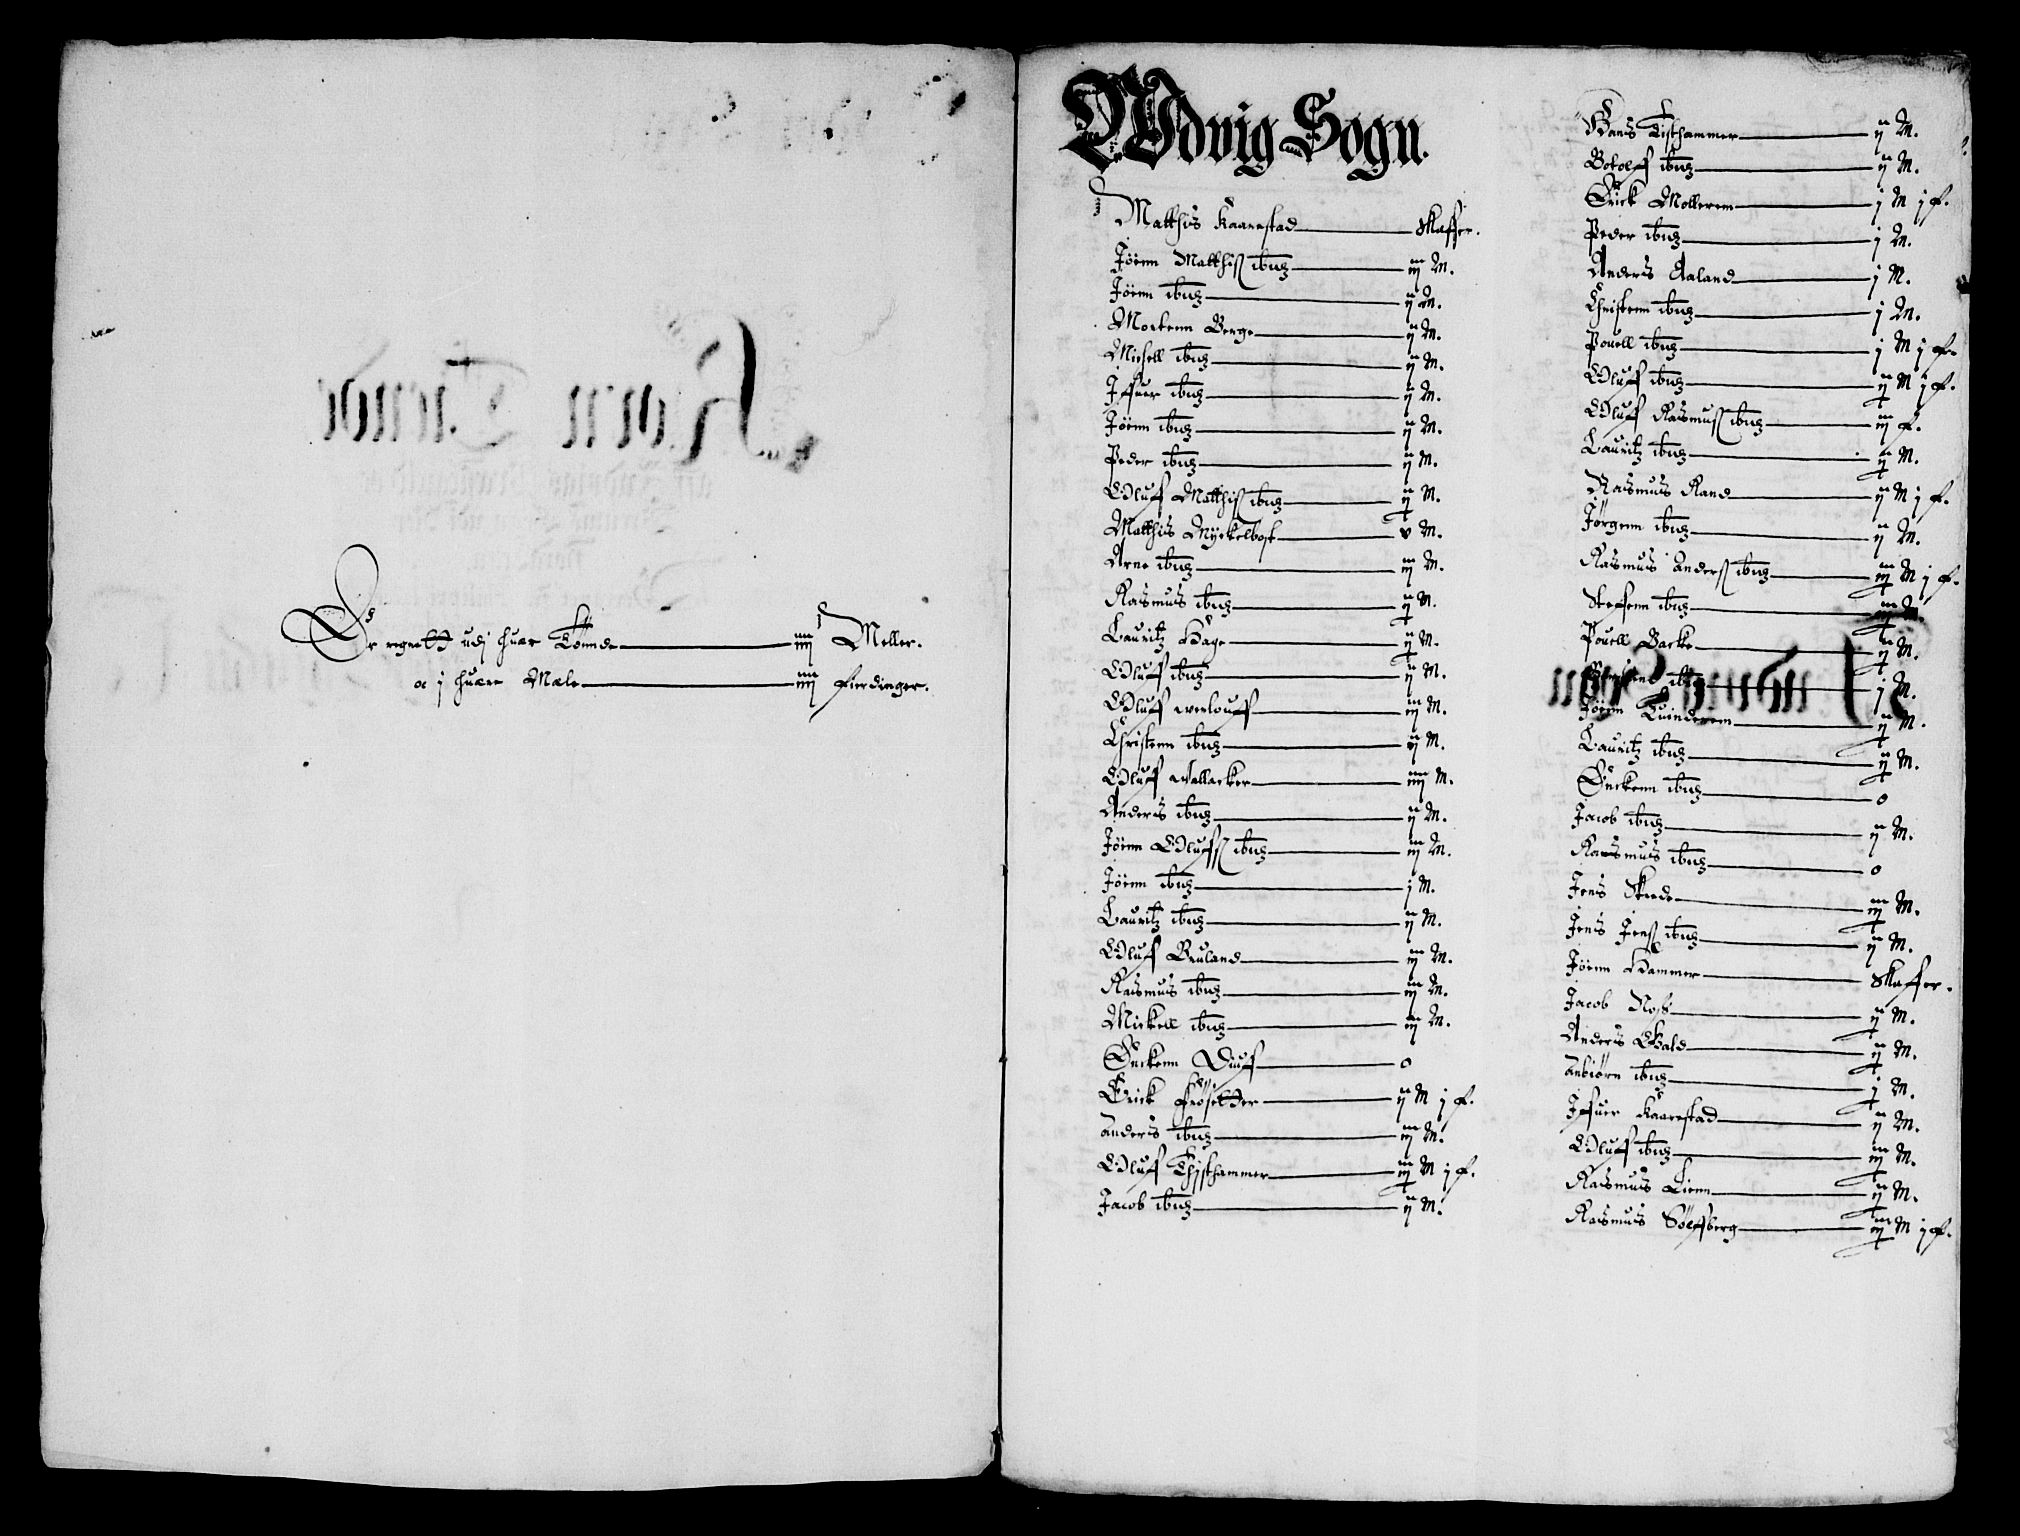 Er regnett udj huer Tønnde iiij Meller.
oc j huere Mele iiij fierdinger.
Wdvig Sogn.
Matthis Kaarestad Skaffer.
Jóenn Matthiß ibid iij M.
Jóenn ibid ij M.
Mortenn Berge ij M.
Michell ibid ij M.
Jffuer ibid ij M.
Jóenn ibid ij M.
Peder ibid ij M.
Oluff Matthiß ibid ij M.
Matthis Myckelbost v M.
Arne ibid iij M.
Rasmus ibid ij M.
Lauritz Hage ij M.
Oluff ibid ij M.
Oluff iij M.
Christenn ibid ij M.
Oluff Vallacker iiij M.
Anders ibid ij M.
Jóenn Oluffß ibid iij M.
Jóenn ibid j M.
Lauritz ibid ij M.
Oluff Bruland iij M.
Rasmus ibid iij M.
Mickell ibid iij M.
Enckenn Diuff o
Erick Frøsetter ij M j f.
Anders ibid iij M.
Oluff Thisthammer iij M j f.
Jacob ibid ij M.
Hans Tisthammer ij M.
Botolff ibid ij M.
Erick Mollerem j M j f.
Peder ibid j M.
Anders Aaland j M.
Christenn ibid j M.
Pouell ibid j M j f.
Oluff ibid ij M j f.
Oluff Rasmuß ibid iij f.
Lauritz ibid ij M.
Rasmus Rand ij M j f.
Jørgenn ibid ij M.
Rasmus Anderß ibid iij M j f.
Steffenn ibid iij M.
Pouell Backe ij M.
ibid j M.
Jóenn Tuinderem ij M.
Lauritz ibid ij M.
Enckenn ibid o
Jacob ibid ij M.
Rasmus ibid o
Jens Skrede iij M.
Jens Jenß ibid ij M.
Jóenn Hammer Skaffer.
Jacob Noß ij M.
Anders Wald ij M.
Anbiørn ibid j M.
Jffuer Kaarestad ij M.
Oluff ibid iij M.
Rasmus Lienn ij M.
Rasmus Sølffberg iij M j f.